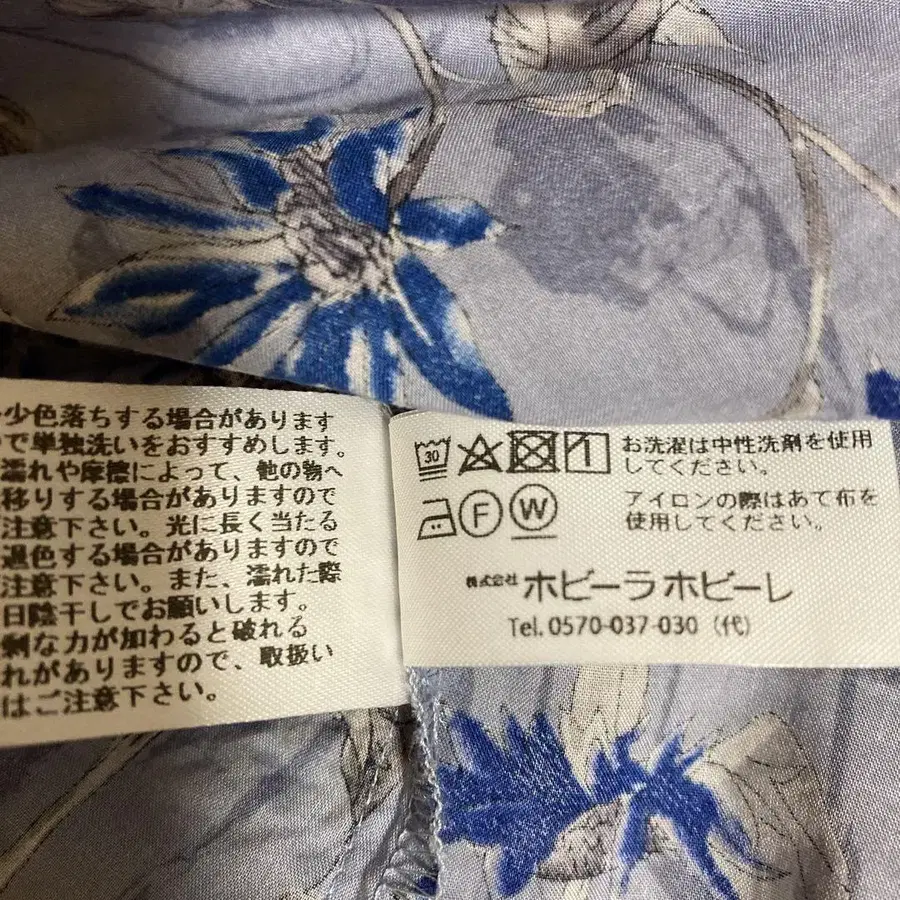 少色落ちする場合があります
で単独洗いをおすすめします。
濡れや摩擦によって、他の物へ
移りする場合がありますので
注意下さい。光に長く当たる
退色する場合がありますので
注意下さい。また、濡れた際
日陰干しでお願いします。
剰な力が加わると破れる
れがありますので、取扱い
はご注意下さい。
30
お洗濯は中性洗剤を使用
してください。
F W
アイロンの際はあて布を
使用してください。
株式会社 ホビーラホビーレ
Tel. 0570-037-030（代）